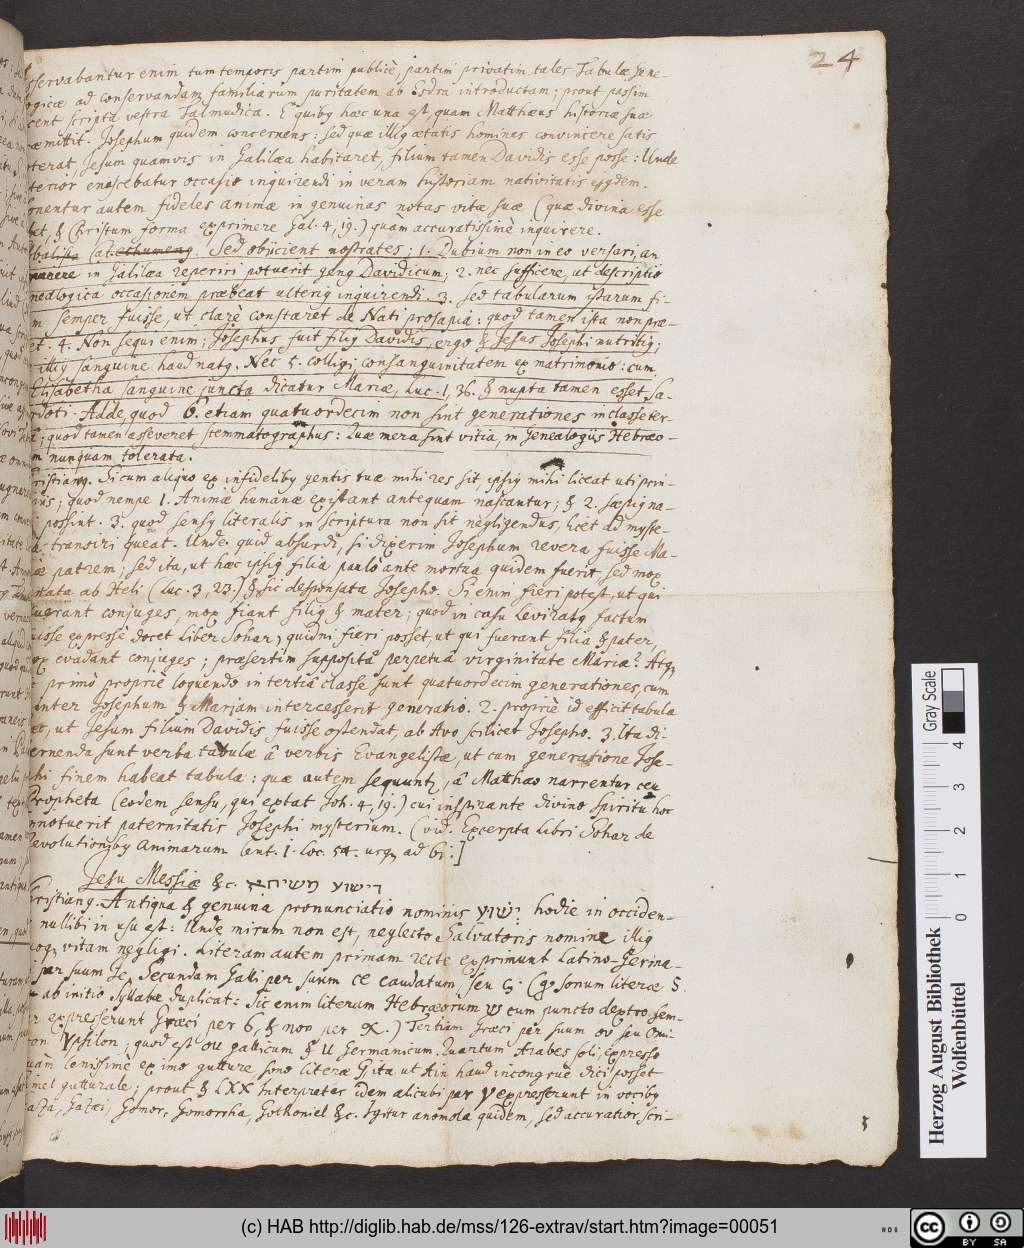 24
servabantur enim tum temporis partim publicè, partim privatim tales Tabulæ Gene-
ogicæ ad conservandam familiarum puritatem ab Esdra introductam; prout passim
cent scripta vestra Talmudica. E quibꝰ hæc una est, quam Matthæus historiæ suæ
æmittit. Josephum quidem concernens: sed quæ illiꝰ ætatis homines convincere satis
terat, Jesum quamvis in Galilæa habitaret, filium tamen Davidis esse posse: Unde
terior enascebatur occasio inquirendi in veram historiam nativitatis ejꝰdem.
nentur autem fideles animæ in genuinas notas vitæ suæ (quæ divina esse
bet, & Christum forma exprimere Gal. 4, 19.) quàm accuratissimè inquirere.
Cat Sed objicient nostrates: 1. Dubium non in eo versari, an
in Galilæa reperiri potuerit genꝰ Davidicum; 2. nec sufficere, ut descriptio
nealogica occasionem præbeat ulteriꝰ inquirendi. 3. sed tabularum istarum fi-
m semper fuisse, ut clarè constaret de Nati prosapia: quod tamen ista non præ-
et. 4. Non sequi enim; Josephus fuit filiꝰ Davidis, ergo & Jesus Josephi nutritiꝰ;
illiꝰ sanguine haud natꝰ. Nec 5. colligi consanguinitatem ex matrimonio: cum
Elisabetha sanguine juncta dicatur Mariæ, Luc. 1, 36. & nupta tamen esset Sa-
rdoti. Adde, quod 6. etiam quatuordecim non sint generationes in classe ter-
; quod tamen asseveret stemmatographus: Quæ mera sint vitia, in Genealogiis Hebræo-
m nunquam tolerata.
ristianꝰ. Si cum aliquo ex infidelibꝰ gentis tuæ mihi res sit, ipsiꝰ mihi liceat uti prin-
iis; quod nempe 1. Animæ humanæ existant antequam nascantur; & 2. sæpiꝰ na-
i possint. 3. quod sensꝰ literalis in scriptura non sit negligendus, licet ad myste-
transiri queat. Unde quid absurdi, si dixerim Josephum revera fuisse Ma-
æ patrem; sed ita, ut hæc ipsiꝰ filia paulò ante mortua quidem fuerit, sed mox
tata ab Heli (Luc. 3, 23.) & sic desponsata Josepho. Si enim fieri potest, ut qui
uerant conjuges, mox fiant filiꝰ & mater; quod in casu Leviratꝰ factum
uisse expressè docet liber Sohar, quidni fieri posset, ut qui fuerant filia & pater,
ox evadant conjuges; præsertim supposita perpetua virginitate Mariæ? Atq;
primò propriè loquendo in tertia classe sunt quatuordecim generationes, cum
inter Josephum & Mariam intercesserit generatio. 2. propriè id efficit tabula
, ut Jesum filium Davidis fuisse ostendat, ab Avo scilicet Josepho. 3. Ita di-
ernenda sunt verba tabulæ à verbis Evangelistæ, ut cum generatione Jose-
hi finem habeat tabula: quæ autem sequuntꝛ, à Matthæo narrentur ceu
Propheta (eodem sensu, qui extat Joh. 4, 19.) cui inspirante divino Spiritu hoc
notuerit paternitatis Josephi mysterium. (vid. Excerpta libri Sohar de
Revolutionibꝰ Animarum Cent. 1. loc. 54. usq; ad 61.]
Jesu Messiæ &c. דישוע משיחא
Christianꝰ. Antiqua & genuina pronunciatio nominis ישוע hodie in occiden-
nullibi in usu est: Unde mirum non est, neglecto Salvatoris nomine illiꝰ
oq; vitam negligi. Literam autem primam recte exprimunt Latino-Germa-
i per suum Je, Secundam Galli per suum ce caudatum, seu ç: (qꝰ sonum literæ S
ab initio syllabæ duplicat: Sic enim literam Hebræorum ש cum puncto dextro sem-
r expresserunt Græci per σ, & non per χ.) Tertiam Græci per suum ου seu Omi-
ron Ypsilon; quod est ou gallicum & U Germanicum. Quartum Arabes soli; expresso
uàm lenissimè ex imo gutture sono literæ G, ita ut Ain haud incongruè dici posset
imel gutturale; prout & LXX Interpretes idem alicubi per γ expresserunt in vocibꝰ
aza, Gazæi, Gomor, Gomorrha, Gothoniel &c. Igitur anomola quidem, sed accuratior scri-
Gray Scale
0 1 2 3 4
Herzog August Bibliothek
Wolfenbüttel
(c) HAB http://diglib.hab.de/mss/126-extrav/start.htm?image=00051
cc BY SA